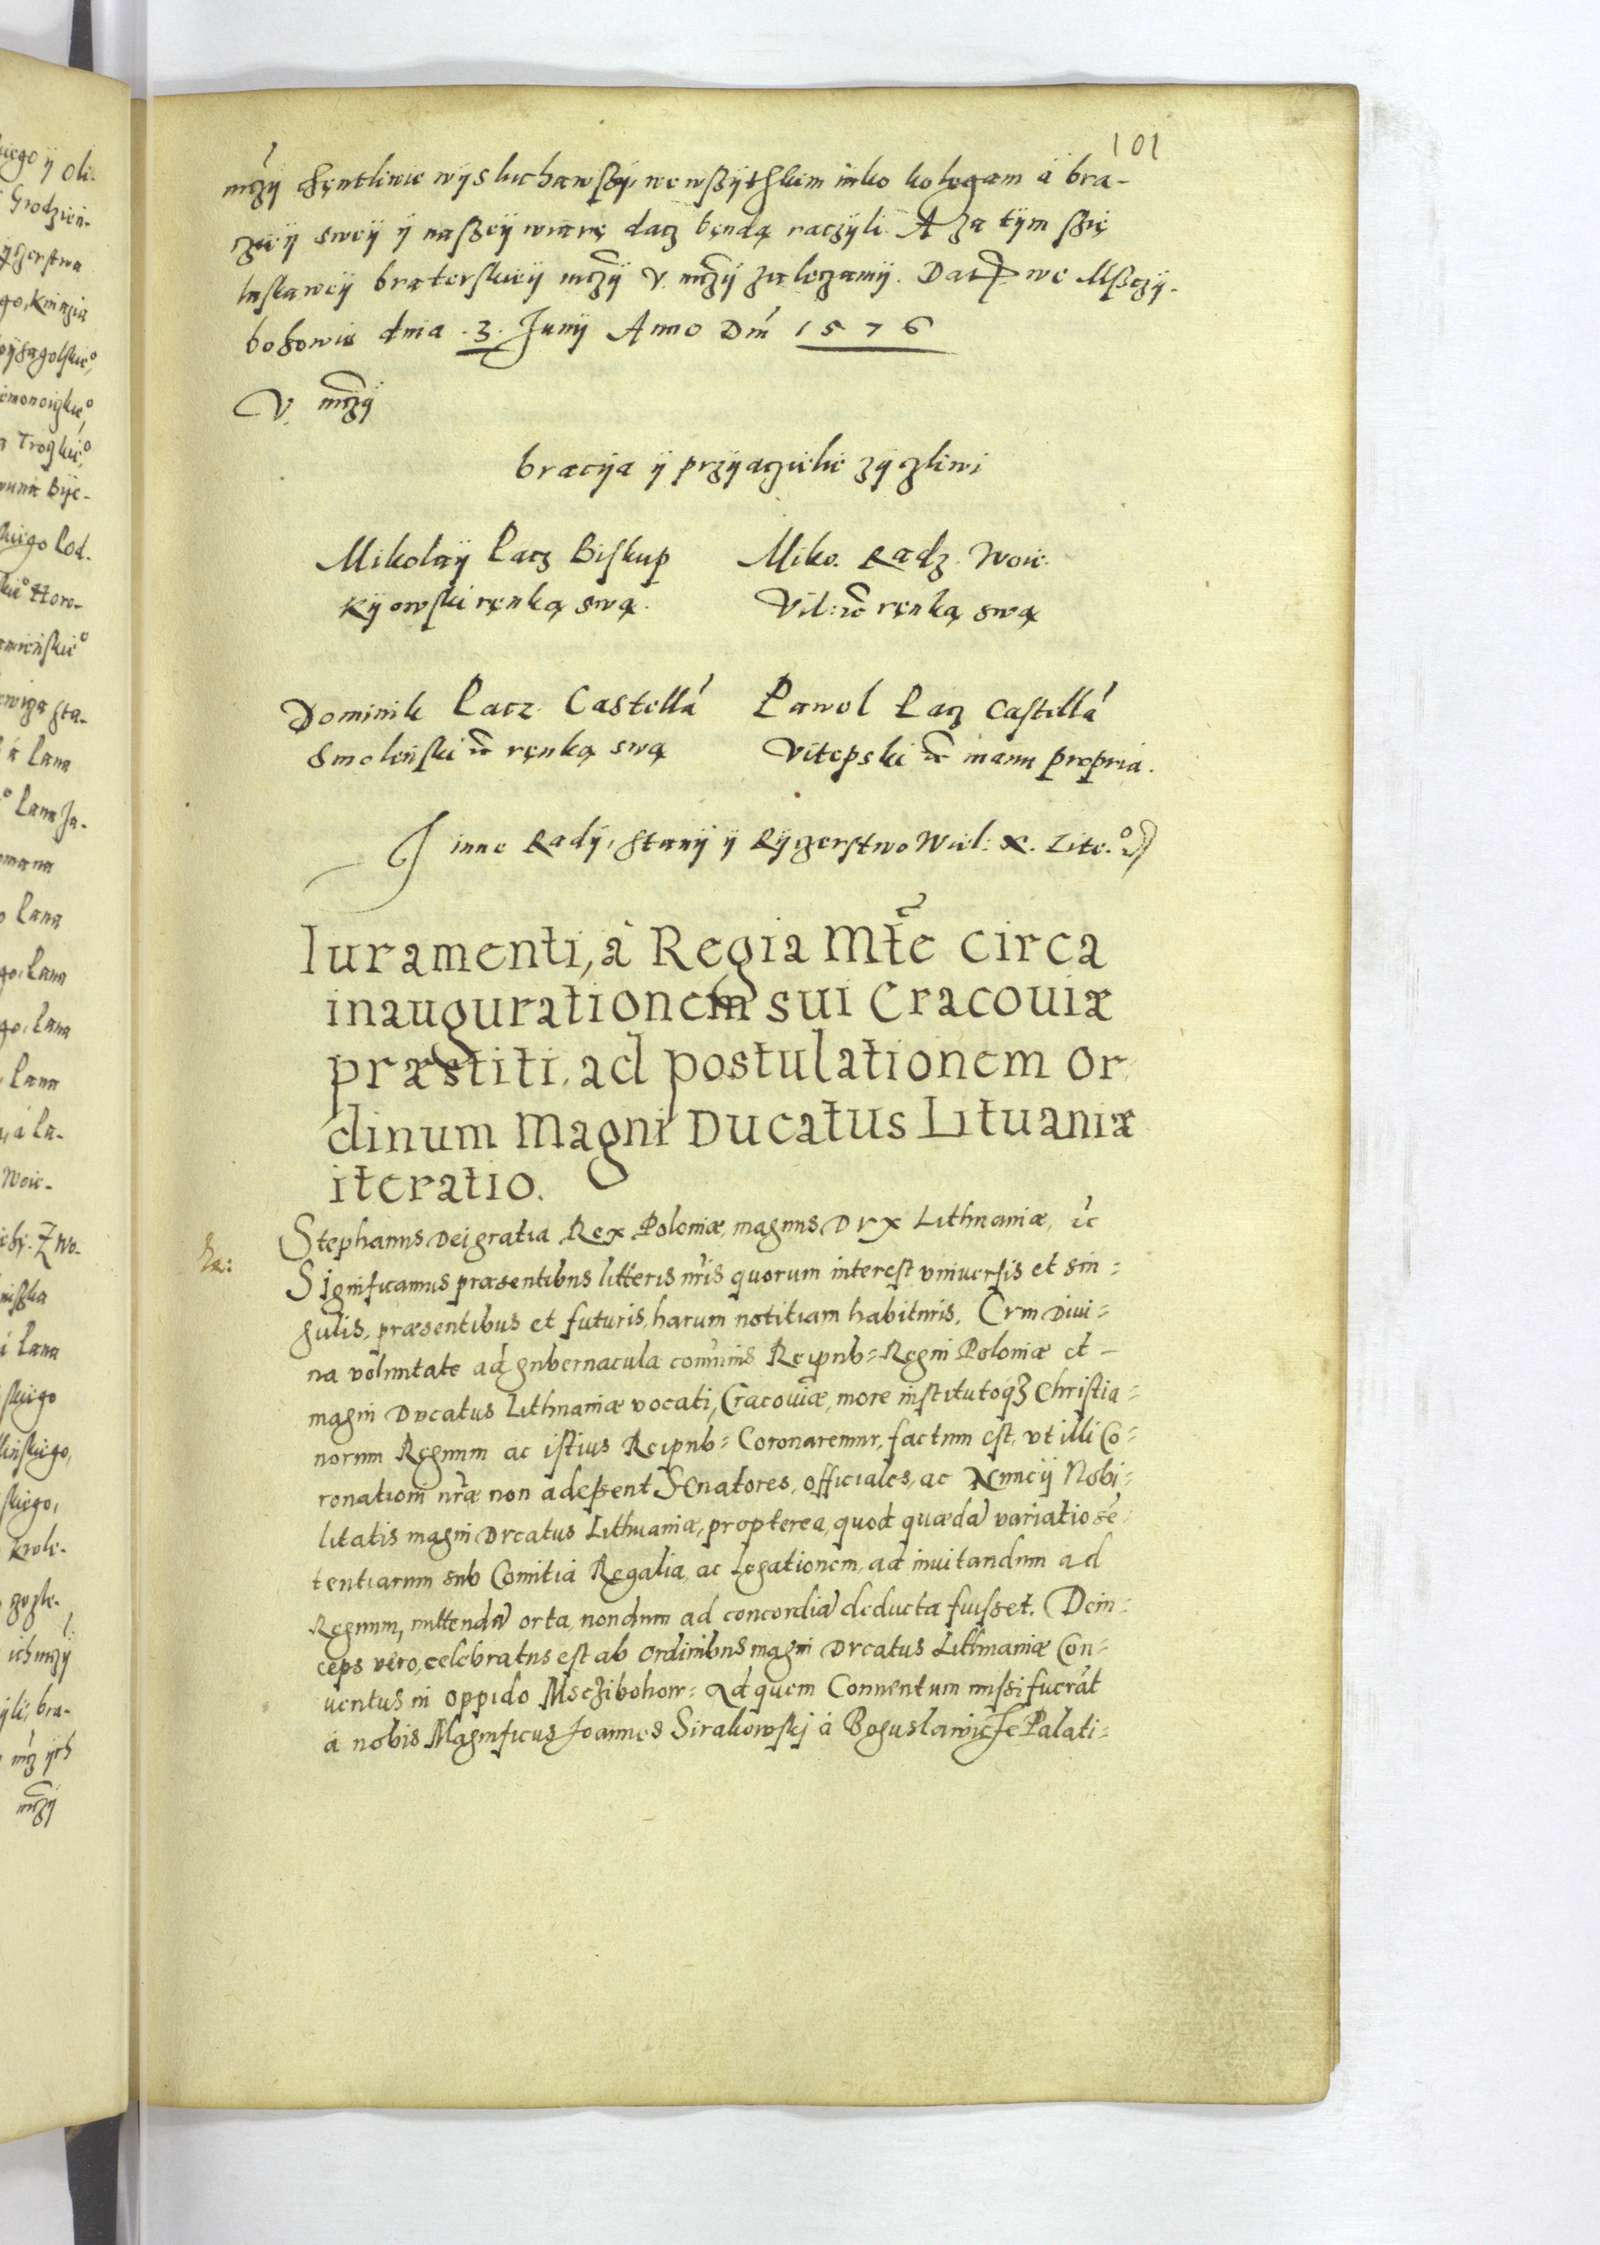 101
mczÿ chęntliwie wÿsluchawszÿ, wewszÿthkiem iako kolegam á bra-
cziëÿ sweÿ ÿ naszeÿ wiarę dacz bęndą raczÿli. A za tÿm szię
laskaweÿ braterskieÿ mczÿ V. mczÿ zaleczamÿ. Dat we Msczÿ-
bohowie dnia .3. Junÿ Anno Dni 1576
V. mczÿ
bracÿa ÿ przÿaczielie zÿczliwi
Mikolaÿ Pacz Biskup
Kÿowski ręnką swą.
Miko. Radz. Woie.
Vil: ręnką swą
Dominik Pacz Castellá
Smoleński ręnką swą
Pawel Pacz Castellá
Vitepski manu propria.
J inne Radÿ, stanÿ ÿ Rÿcerstwo Wiel: X. Lite.º
Iuramenti, à Regia Mte circa
inaugurationem sui Cracouiæ
præstiti, ad postulationem or
dinum Magni Ducatus Lituaniæ
iteratio.
Stephanus Dei gratia Rex Poloniæ, magnus Dux Lithuaniæ, ec
Significamus præsentibus litteris nris quorum interest vniuersis et sin=
gulis, præsentibus et futuris, harum notitiam habituris. Cum Diui=
na voluntate ad gubernacula comunis Reipub= Regni Poloniæ et
magni Ducatus Lithuaniæ vocati, Cracouiæ, more institutoq3 Christia=
norum Regnum ac istius Reipub= Coronaremur, factum est, vt illi Co=
ronationi nræ non adessent Senatores, officiales, ac Nuncij Nobi=
litatis magni Ducatus Lithuaniæ, propterea, quod quædã variatio sẽ=
tentiarum sub Comitia Regalia, ac legationem, ad inuitandum ad
Regnum, mittendã orta, nondum ad concordiã deducta fuisset. Dein=
ceps vero, celebratus est ab ordinibus magni Ducatus Lithuaniæ Con=
uentus in oppido Msczibohow= Ad quem Conuentum missi fuerãt
a nobis Magnificus Joannes Sirakowskj à Boguslawice Palati=